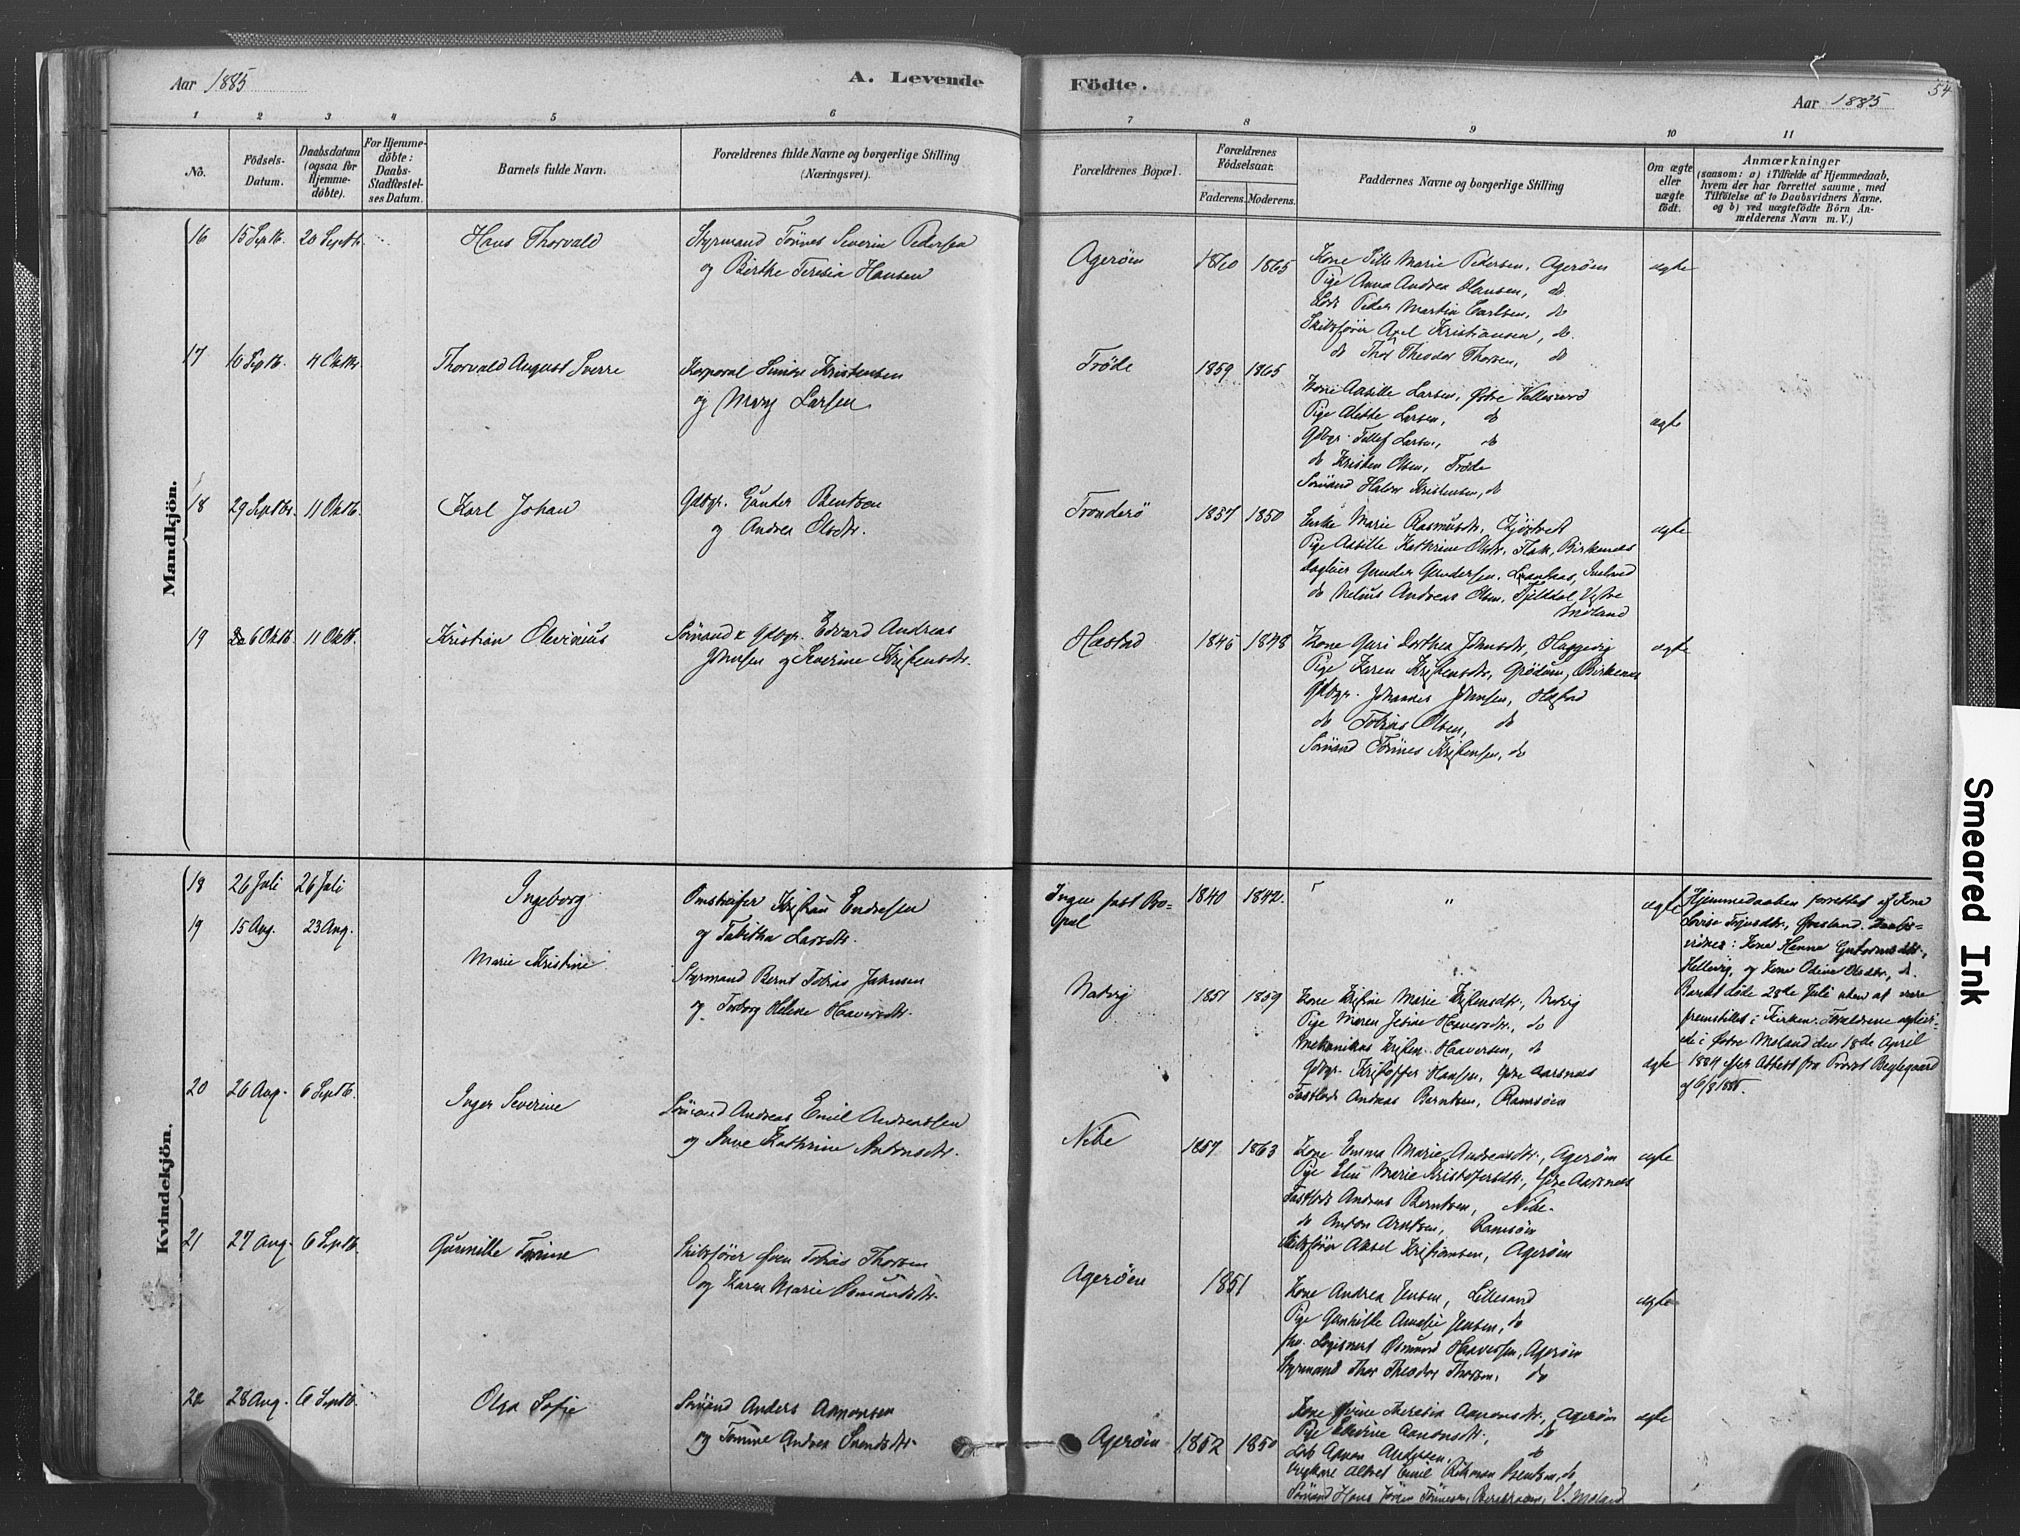 Aar 1885
A. Levende
Födte.
Aar 1885
54
1 2 3 4 5 6 7 8 9 10 11
No.
Födsels-
Datum.
Daabsdatum
(ogsaa for
Hjemme-
döbte).
For Hjemme-
döbte:
Daabs-
Stadfæstel-
ses Datum.
Barnets fulde Navn.
Forældrenes fulde Navne og borgerlige Stilling
(Næringsvei).
Forældrenes Bopæl.
Forældrenes
Födselsaar.
Faderens. Moderens.
Faddernes Navne og borgerlige Stilling
Om ægte
eller
uægte
födt.
Anmærkninger
(saasom: a) i Tilfælde af Hjemmedaab,
hvem der har forrettet samme, med
Tilföielse af to Daabsvidners Navne.
og b) ved uægtefödte Börn An-
melderens Navn m. V.)
Mandkjön.
16 15 Septb. 20 Septbr.
Hans Thorvald
Styrmand Tönnes Severin Pedersen
og Birthe Teresia Hansen
Agerøen
1860 1865
Kone Sille Marie Pedersen, Agerøen
Pige Anna Andrea Hansen, do
Lods Peder Martin Carlsen, do
Skibsfører Axel Kristiansen, do
do Thor Theodor Thorsen, do
ægte
17 10 Septb. 4 Oktbr
Thorvald August Sverre
Korporal Simon Kristensen
og Mary Larsen
Trøde
1859 1865
Kone Aasille Larsen, Østre Vallesverd
Pige Alette Larsen, do
Gdbgr. Tellef Larsen, do
do Kristen Olsen, Trøde
Sømand Halvor Kristensen, do
ægte
18 29 Septbr. 11 Oktb.
Karl Johan
Gdbgr. Gunder Bentsen
og Andrea Olsdtr.
Tronderø
1857 1850
Enke Marie Rasmusdtr.
Pige Aasille Kathrine Olsdtr. Flak, Birkenes
Daglejer Gunder Gundersen,
do Nelius Andreas Olsen, Tjelldal, Vestre
Moland
ægte
19 6 Oktb. 11 Oktb.
Kristian Olevinius
Sømand & Gdbgr. Edvard Andreas
Johnsen og Severine Kristensdtr.
Hæstad
1845 1848
Kone Guri Dorthea Johnsdtr,
Pige Karen Kristensdtr, Grødum, Birkenes
Gdbgr. Johannes Johnsen, Hæstad
do Tobias Olsen, do
Sømand Tønnes Kristensen, do
ægte
Kvindekjön.
18 26 Juli 26 Juli
Ingeborg
Omstreifer Kristian Endresen
og Tabitha Larsdtr.
Ingen fast Bo-
pæl
1840 1842.
"
ægte
Hjemmedaaben forrettet af Kone
Terjesdtr, Øvesland. Daabs-
vidner: Kone Hanna Guttormsdtr,
Hellevig, og Kone Odine Olsdtr, do.
Barnet døde 28de Juli uden at være
fremstillet i Kirken. Forældrene ægtevi-
ede i Østre Moland den 18de April
1884 efter Attest fra Provst
af 6/8 1885.
19 15 Aug. 23 Aug.
Marie Kristine
Styrmand Bernt Tobias Jakobsen
og Torborg Helene Haaversdtr.
Natvig
1851 1859
Kone Kristine Marie Kristensdtr, Natvig
Pige Maren Jesine Haaversdtr., do
Mekanikus Kristen Haaversen, do
Gdbgr. Kristoffer Hansen, Øvre Aarsnes
Fastlods Andreas Berntsen, Ramsøen
ægte
20 26 Aug. 6 Septb.
Inger Severine
Sømand Andreas Emil Andreassen
og Jane Kathrine Antonsdtr.
Nibe
1857 1863
Kone Emma Marie Andreasdtr., Agerøen
Pige Elen Marie Kristofersdtr., Øvre Aarsnes
Fastlods Andreas Berntsen, Nibe
do Anton Arntsen, Ramsøen
Skibsfører Aksel Kristiansen, Agerøen
ægte
21 27 Aug. 6 Septb.
Gunnille Tomine
Skibsfører Sven Tobias Thorsen
og Karen Marie Osmundsdtr.
Agerøen
1851
Kone Andrea Jensen, Lillesand
Pige Gunhilde Amalie Jensen, do
Osmund Haaversen, Agerøen
Styrmand Thor Theodor Thorsen, do
ægte
22 28 Aug. 6 Septb.
Olga Sofie
Sømand Anders Aanonsen
og Tomine Andrea Svendsdtr.
Agerøen
1852 1850
Kone Theresia Aanonsdtr., Agerøen
Pige Aanonsdtr., do
Lods Aanon Andersen, do
Ungkarl Alfred Emil Bentsen, do
Sømand Hans Jørgen Tønnesen, V. Moland
ægte
Smeared Ink